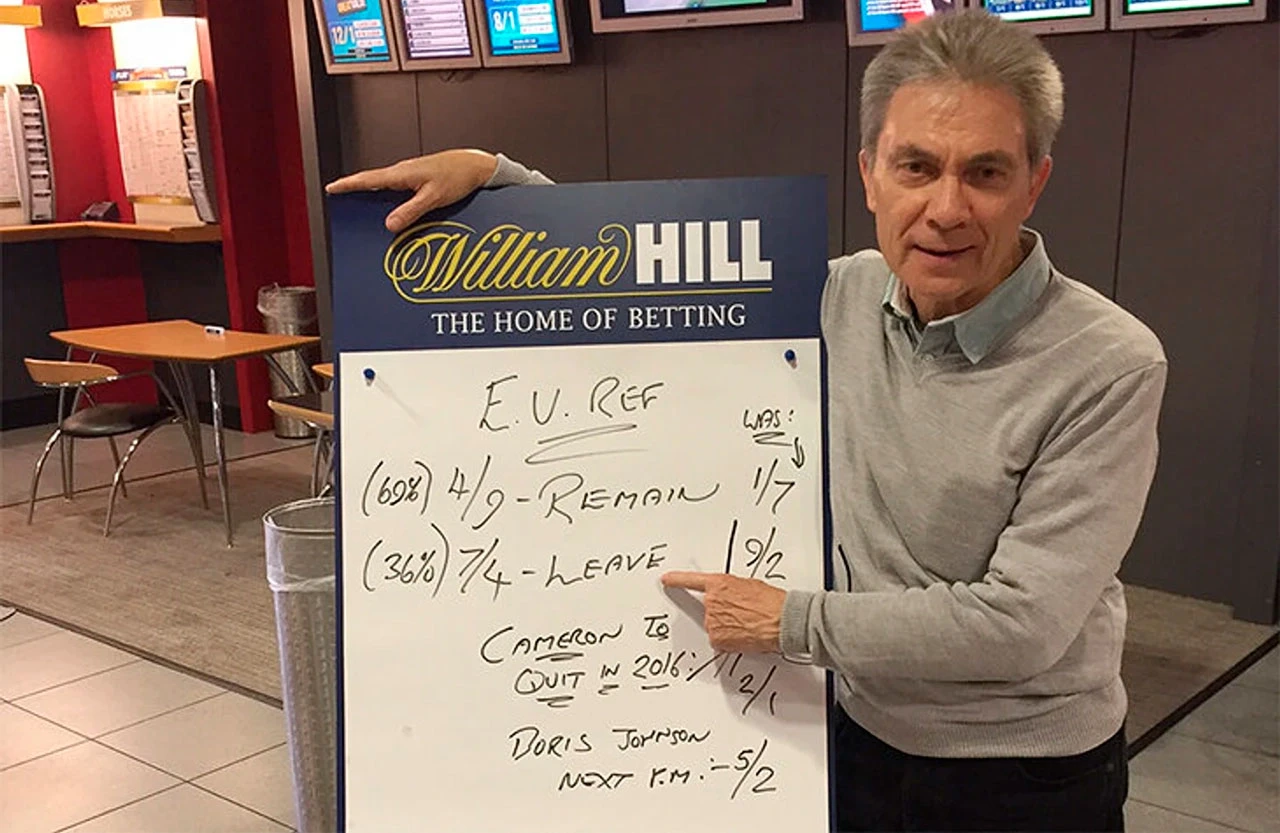 HORSES
12/1
8/1
William HILL
THE HOME OF BETTING
E.U. REF
WAS:
(69%) 4/9 - REMAIN 1/7
(36%) 7/4 - LEAVE 9/2
CAMERON TO
QUIT IN 2016:
2/1
BORIS JOHNSON
NEXT P.M. :- 5/2